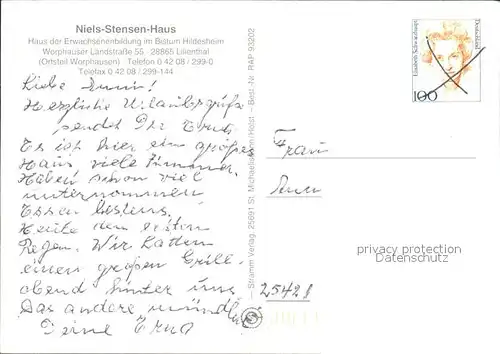 Niels-Stensen-Haus
Haus der Erwachsenenbildung im Bistum Hildesheim
Worphauser Landstraße 55 · 28865 Lilienthal
(Ortsteil Worphausen) Telefon 0 42 08 / 299-0
Telefax 0 42 08 / 299-144
Liebe
Herzliche Urlaubsgrüße
sendet Dir Erna
Es ist hier ein großes
Haus viele Zimmer.
Haben schon viel
unternommen
Essen bestens.
Heute den ersten
Regen. Wir hatten
einen großen Grill-
abend hinter uns
Das andere mündlich
Deine Erna
Stramm Verlag · 25691 St. Michaelisdonn/Holst. – Best.-Nr. RAP 93202
Elisabeth Schwarzhaupt
Deutschland
100
Frau
privacy protection
Datenschutz
25421